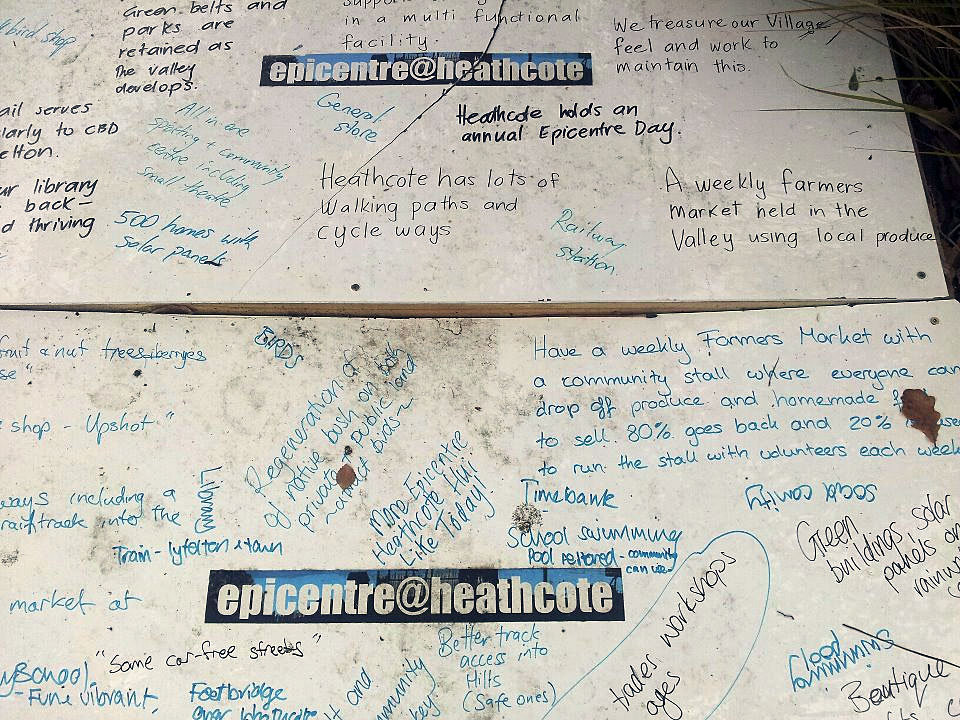 bird shop
Green belts and
parks are
retained as
The valley
develops.
in a multi functional
facility.
We treasure our Village
feel and work to
maintain this.
epicentre@heathcote
ail serves
larly to CBD
elton.
General
store
Heathcote holds an
annual Epicentre Day.
All in one
sporting + community
centre including
small theatre
ur library
back -
d thriving
500 homes with
solar panels
Heathcote has lots of
Walking paths and
cycle ways
Railway
station.
A weekly farmers
market held in the
Valley using local produce
fruit & nut trees
se"
BIRDS
Regeneration of
of native bush on both
private + Public land
~attract birds~
Have a weekly Farmers Market with
a community stall where everyone can
drop off produce and homemade
to sell. 80% goes back and 20%
to run the stall with volunteers each week
shop - Upshot"
Library
ways including a
track into the
Train - lyttelton & town
More Epicentre
Heathcote Hui
Like Today!
Timebank
School swimming
Pool restored - community
can use
Green
buildings solar
panels on
market at
epicentre@heathcote
trades workshops
ages
"Some car-free streets"
School.
- Fun & vibrant,
Footbridge
over
and
Better track
access into
Hills
(Safe ones)
swimming
Pool
Boutique